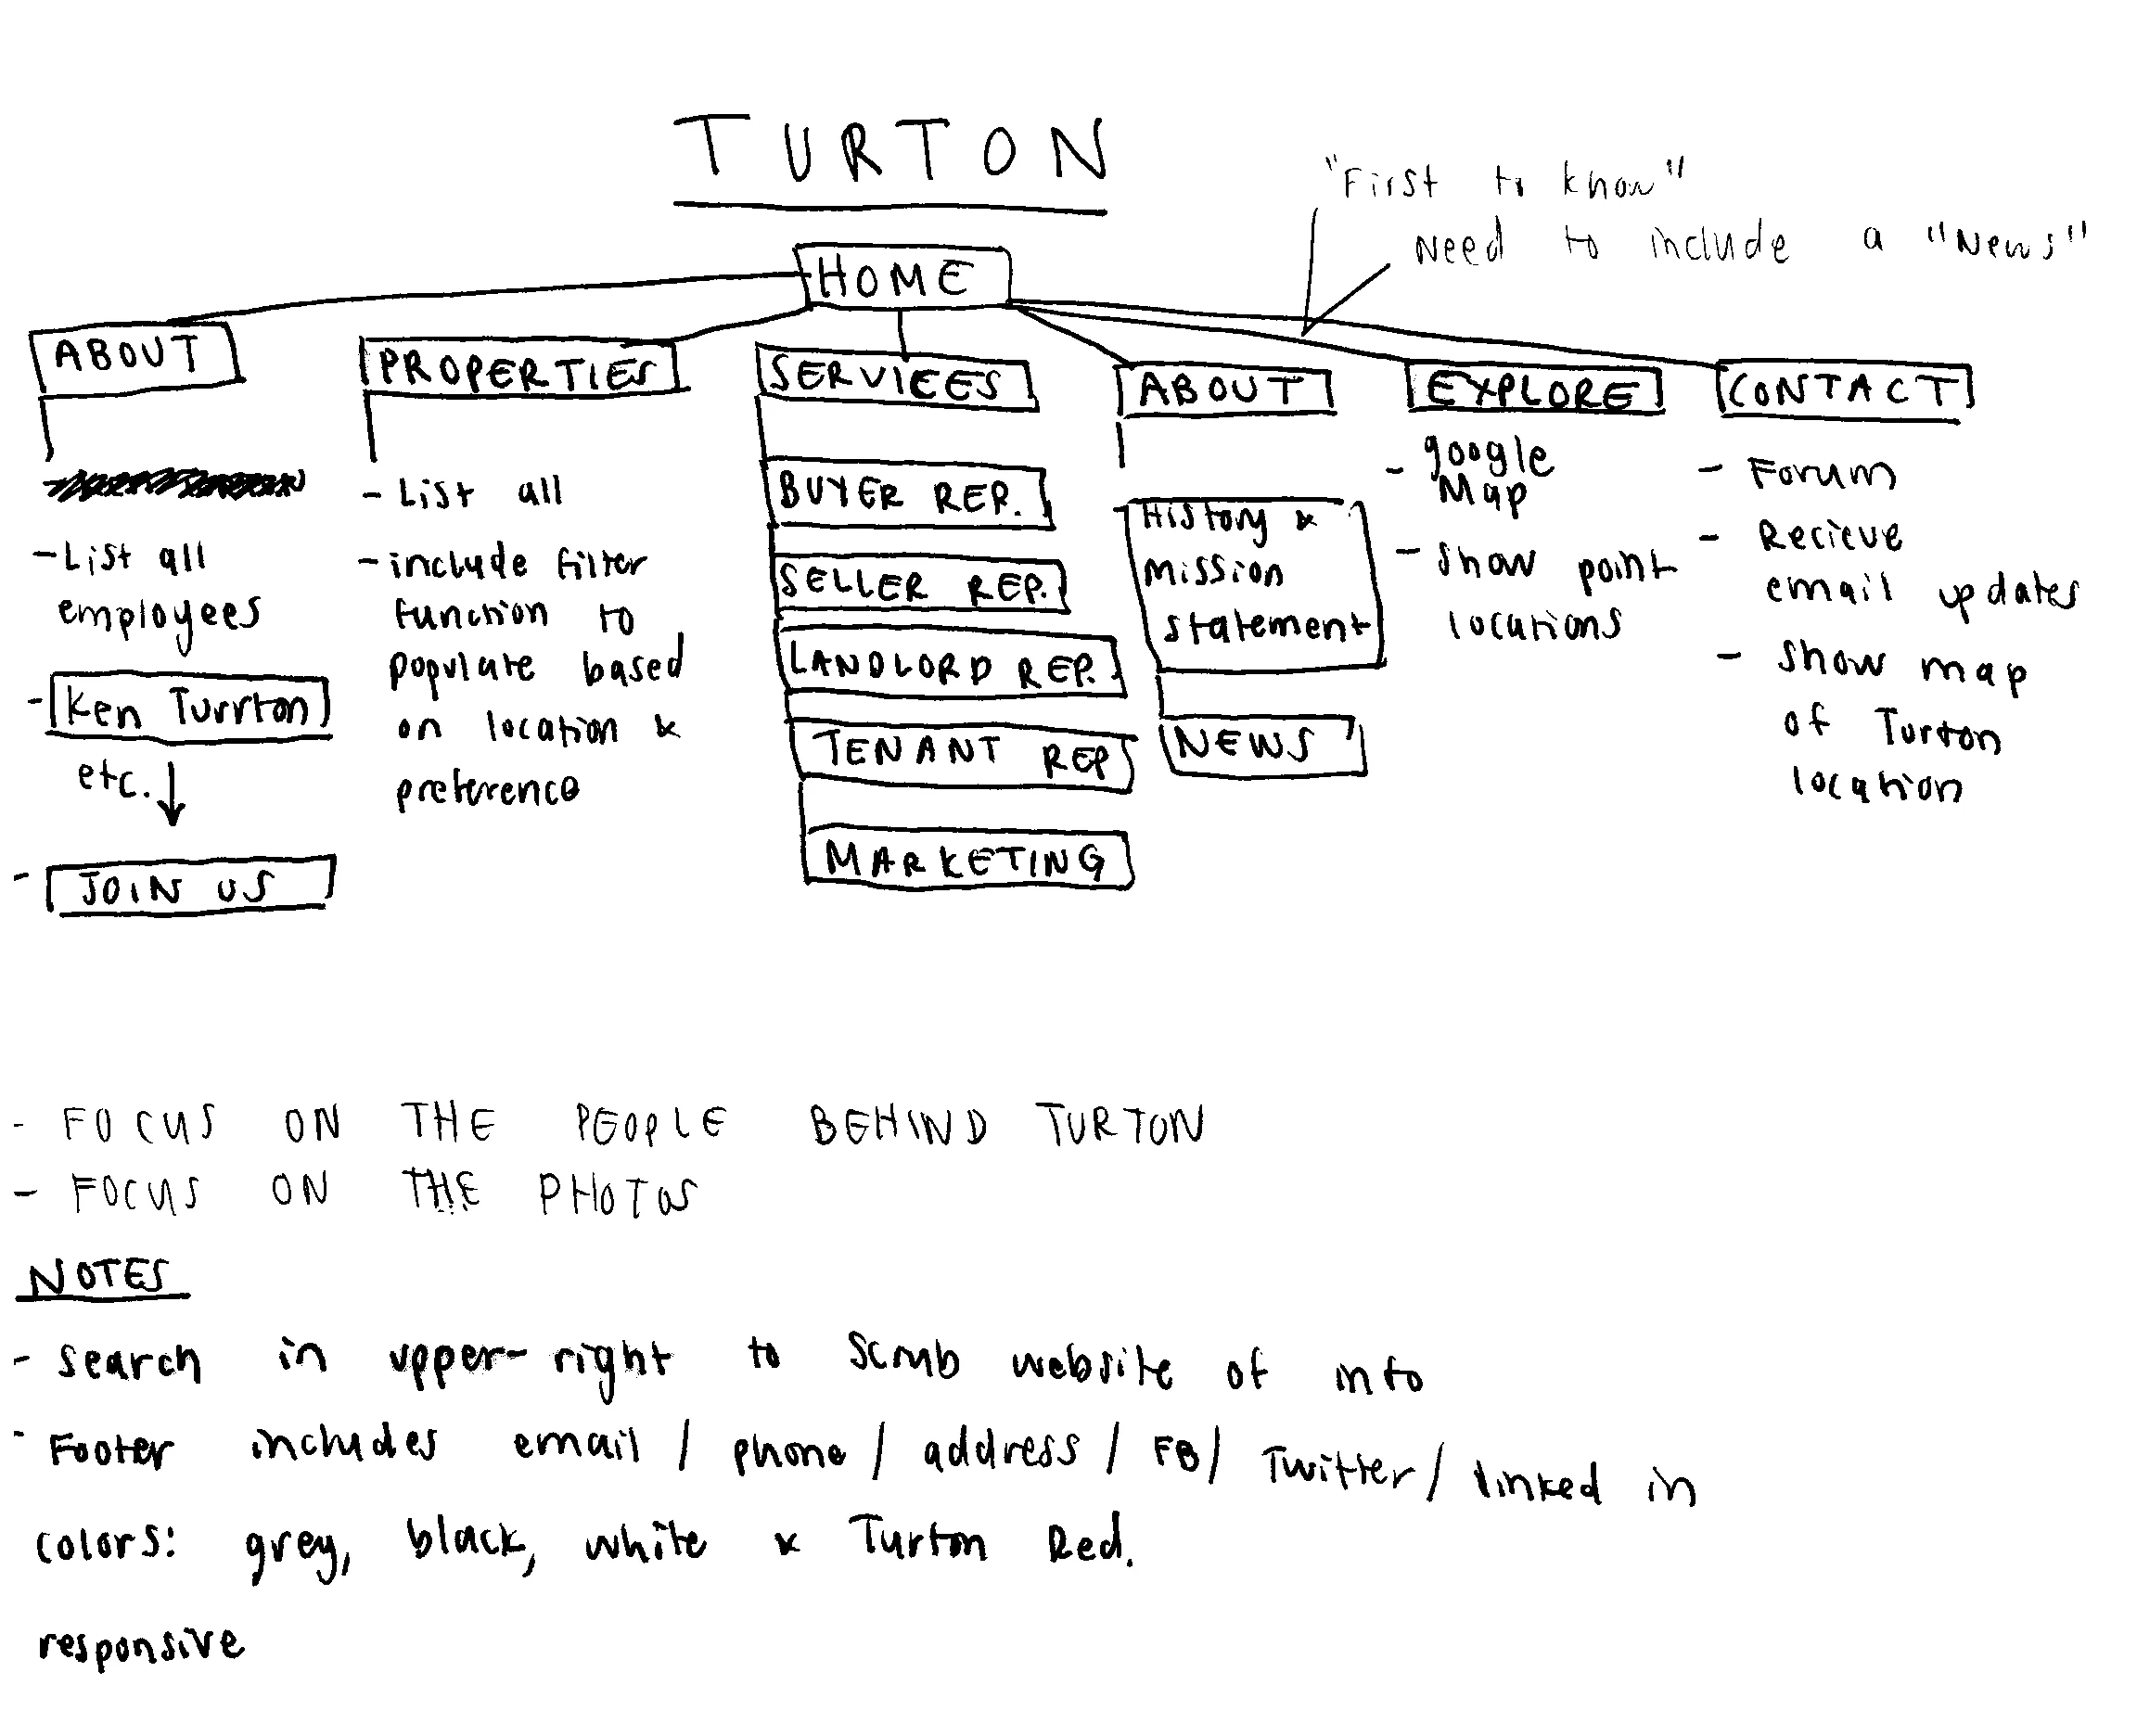 TURTON
"First to know"
Need to include a "News"
HOME
ABOUT
- List all
employees
- Ken Turrton
etc.
- JOIN US
PROPERTIES
- List all
- include filter
function to
populate based
on location &
preference
SERVICES
BUYER REP.
SELLER REP.
LANDLORD REP.
TENANT REP
MARKETING
ABOUT
History &
mission
statement
NEWS
EXPLORE
- google
Map
- show point
locations
CONTACT
- Forum
- Recieve
email updates
- show map
of Turton
location
- FOCUS ON THE PEOPLE BEHIND TURTON
- FOCUS ON THE PHOTOS
NOTES
- search in upper-right to scrub website of info
- Footer includes email / phone / address / FB / Twitter / linked in
colors: grey, black, white & Turton Red.
responsive